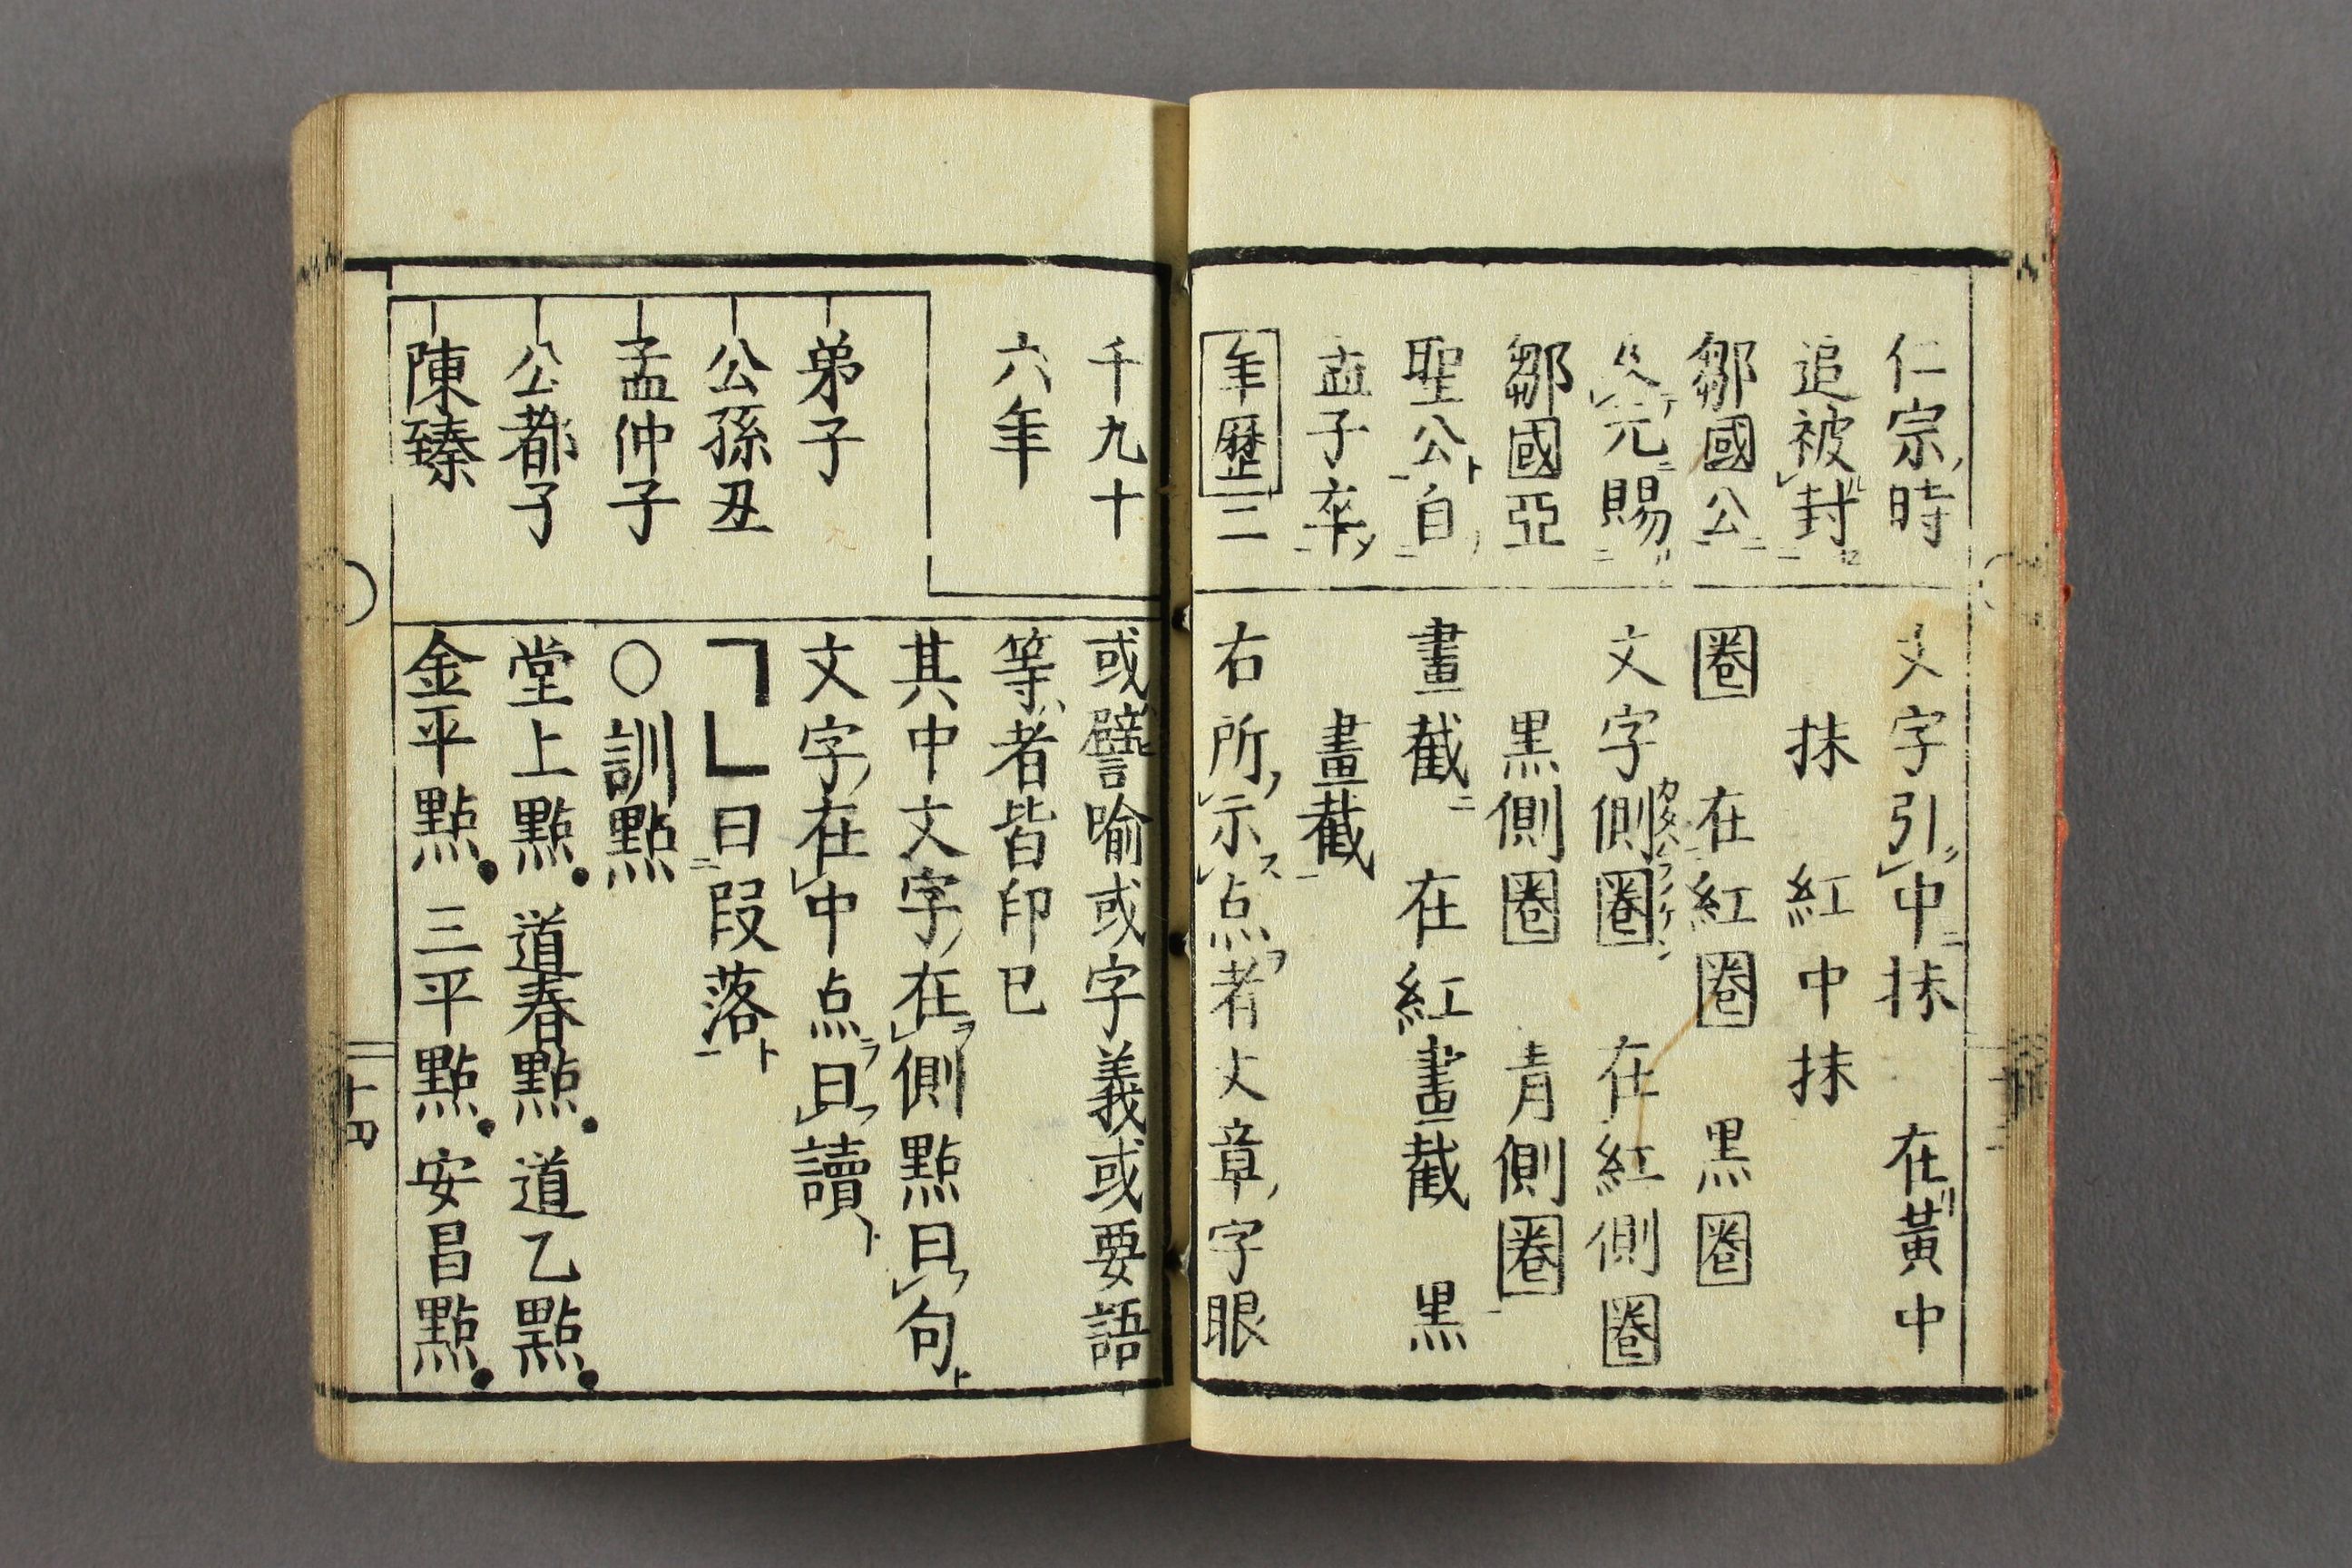 仁宗時
追被封
鄒國公
元賜
鄒國亞
聖公自
孟子卒
年歷三
文字引中抹　在黃中
抹　紅中抹
圈　在紅圈　黒圈
文字側圈　在紅側圈
黒側圈　青側圈
畫截　在紅畫截　黒
畫截
右所示点者文章字眼
千九十
六年
弟子
公孫丑
孟仲子
公都子
陳臻
或譬喻或字義或要語
等者皆印已
其中文字在側點曰句
文字在中点曰讀
﹁﹂曰段落
○訓點
堂上點●道春點●道乙點●
金平點●三平點●安昌點●
十四